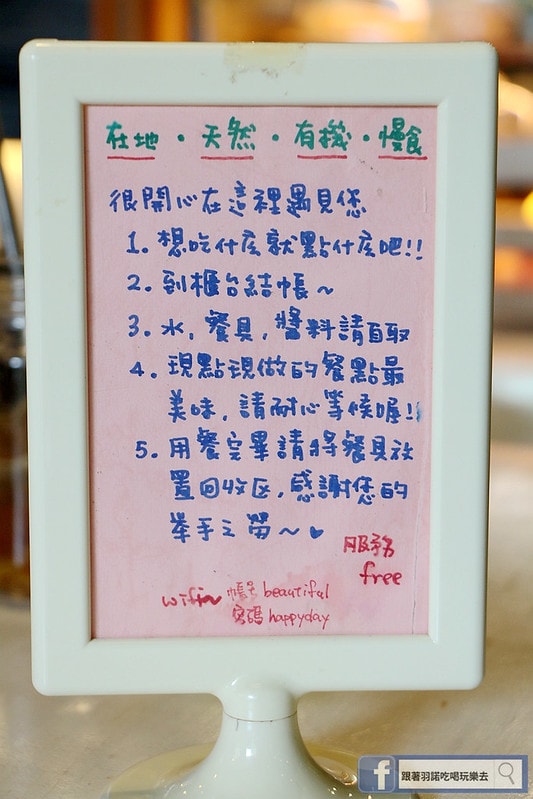 在地・天然・有機・慢食
很開心在這裡遇見您
1. 想吃什広就點什広吧!!
2. 到櫃台結帳~
3. 水, 餐具, 醬料請自取
4. 現點現做的餐點最
美味, 請耐心等候喔!!
5. 用餐完畢請將餐具放
置回收区, 感謝您的
舉手之勞~♥
服務
free
wifi~ 帳号 beautiful
密碼 happyday
f 跟著羽諾吃喝玩樂去